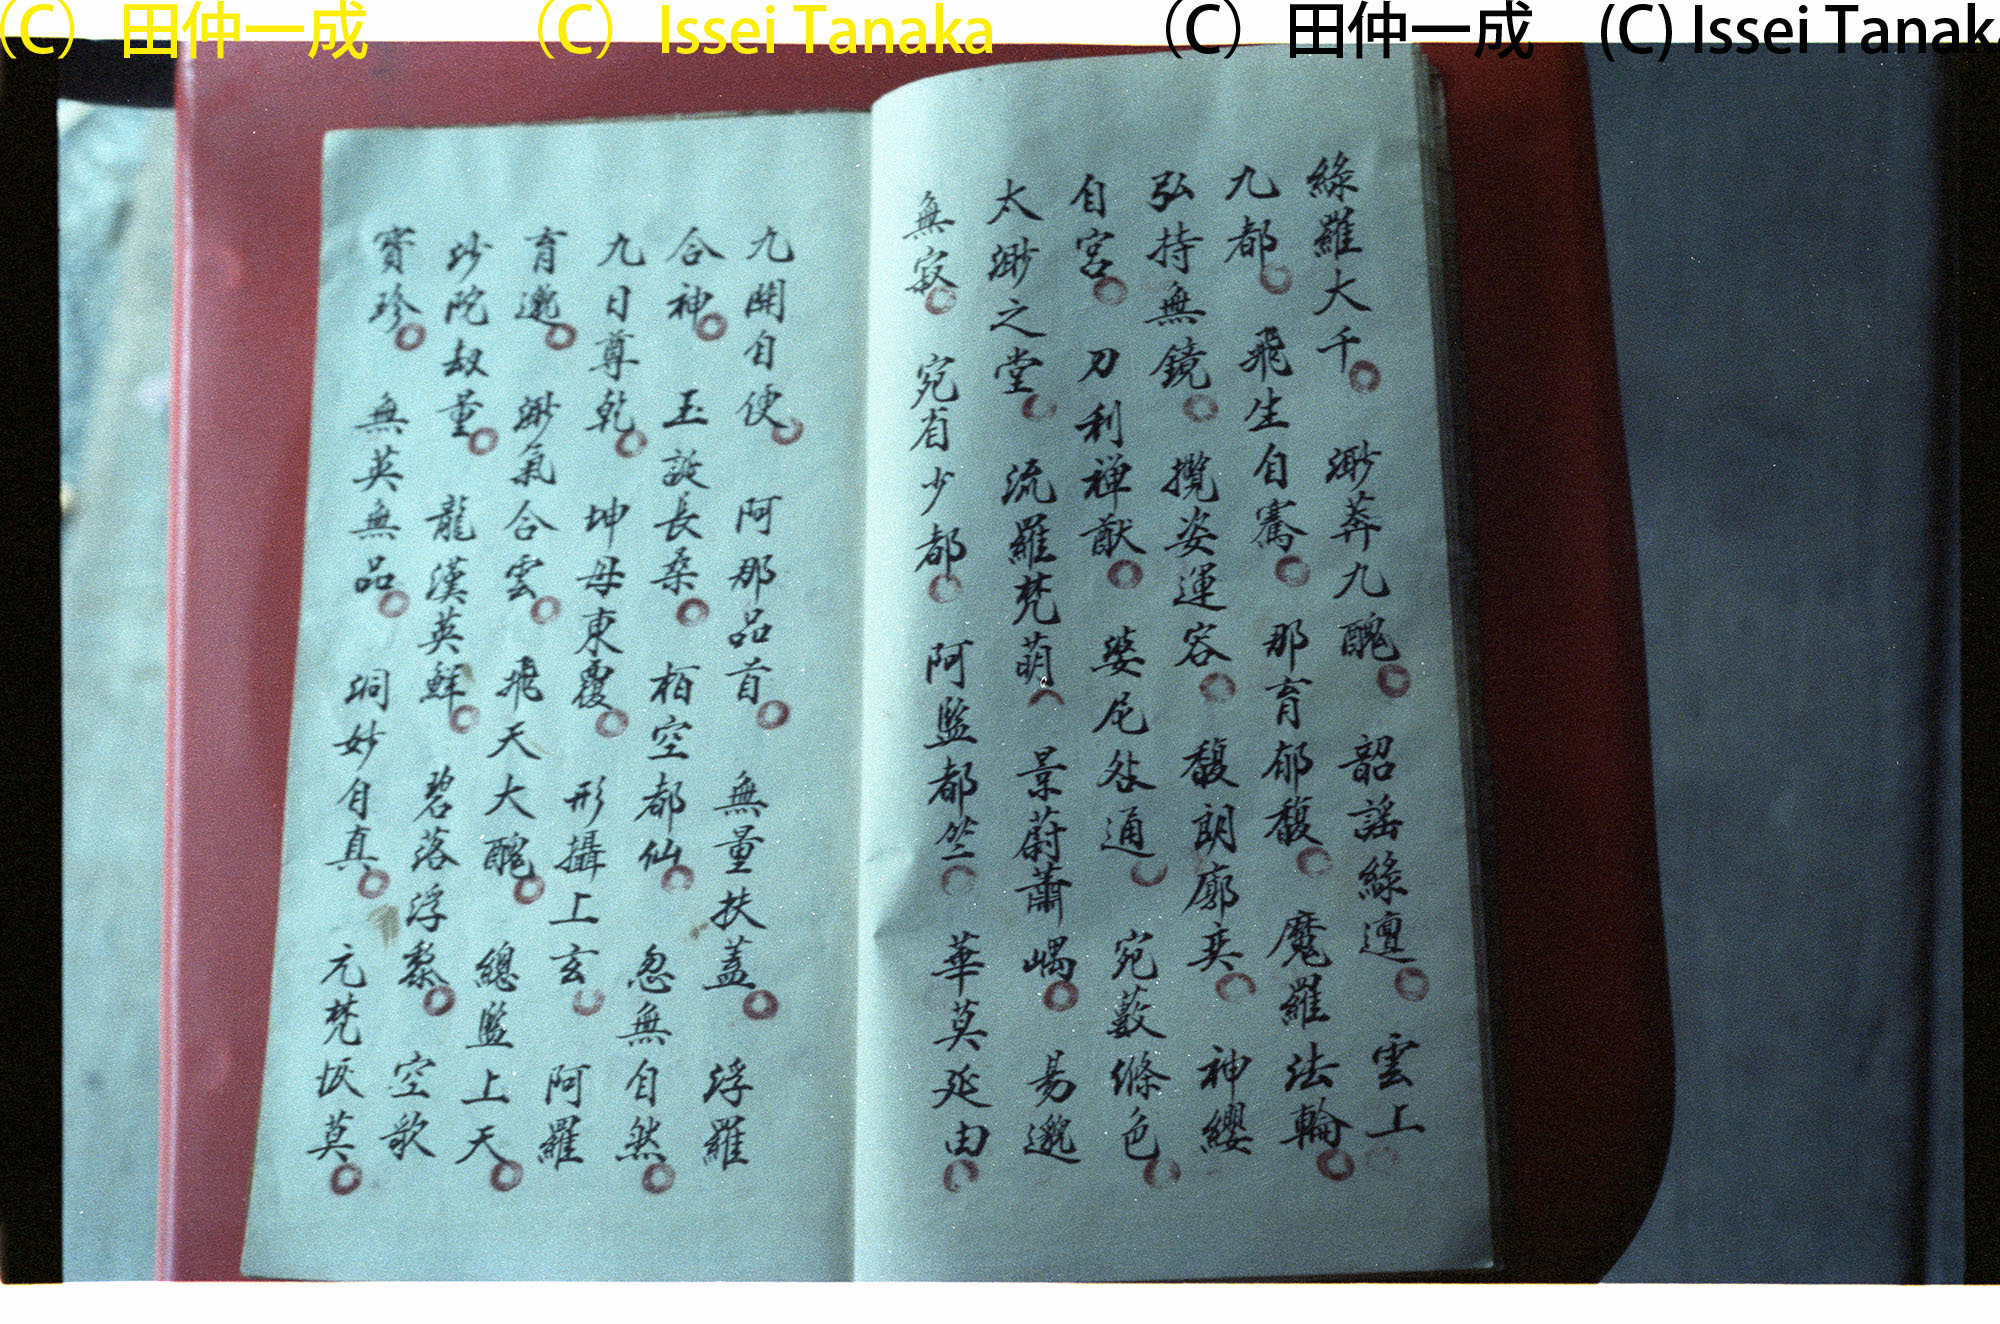 (C) 田仲一成 (C) Issei Tanaka (C) 田仲一成 (C) Issei Tanaka
綠羅大千 渺莽九醜 韶謠綠邅 雲上
九都 飛生自騫 那育郁馥 魔羅法輪
弘持無鏡 攬姿運容 馥朗廓奕 神纓
自宮 刀利禪猷 婆尼咎通 宛藪滌色
太渺之堂 流羅梵萌 景蔚蕭嵎 易邈
無寂 宛首少都 阿監都竺 華莫延由
九開自便 阿那品首 無量扶蓋 浮羅
合神 玉誕長桑 栢空都仙 忽無自然
九日尊乾 坤母東覆 形攝上玄 阿羅
育邈 渺氣合雲 飛天大醜 總監上天
沙陀劫量 龍漢英鮮 碧落浮黎 空歌
寶珍 無英無品 洞妙自真 元梵恢莫